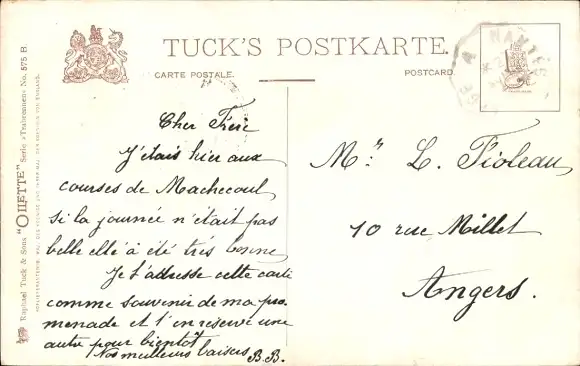 TUCK'S POSTKARTE.
CARTE POSTALE.
POSTCARD.
Raphael Tuck & Sons "OILETTE" Serie «Trabrennen» No. 575 B
Cher Frère
J'étais hier aux
courses de Machecoul
si la journée n'était pas
belle elle a été très bonne
Je t'adresse cette carte
comme souvenir de ma pro
menade et t'en réserve une
autre pour bientôt
Nos meilleurs baisers B.B.
Mr. L. Pioleau
10 rue Millet
Angers.
NANTES